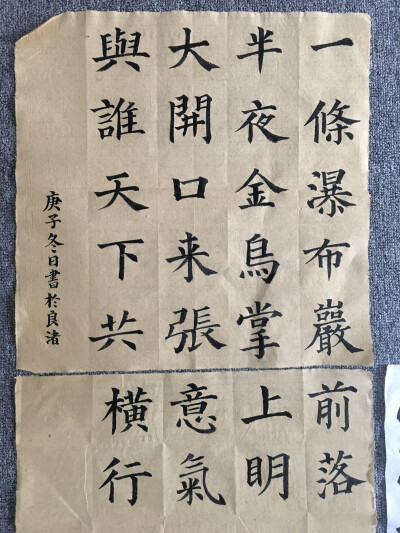 一條瀑布巖前落
半夜金烏掌上明
大開口来張意氣
與誰天下共橫行
庚子冬日書於良渚